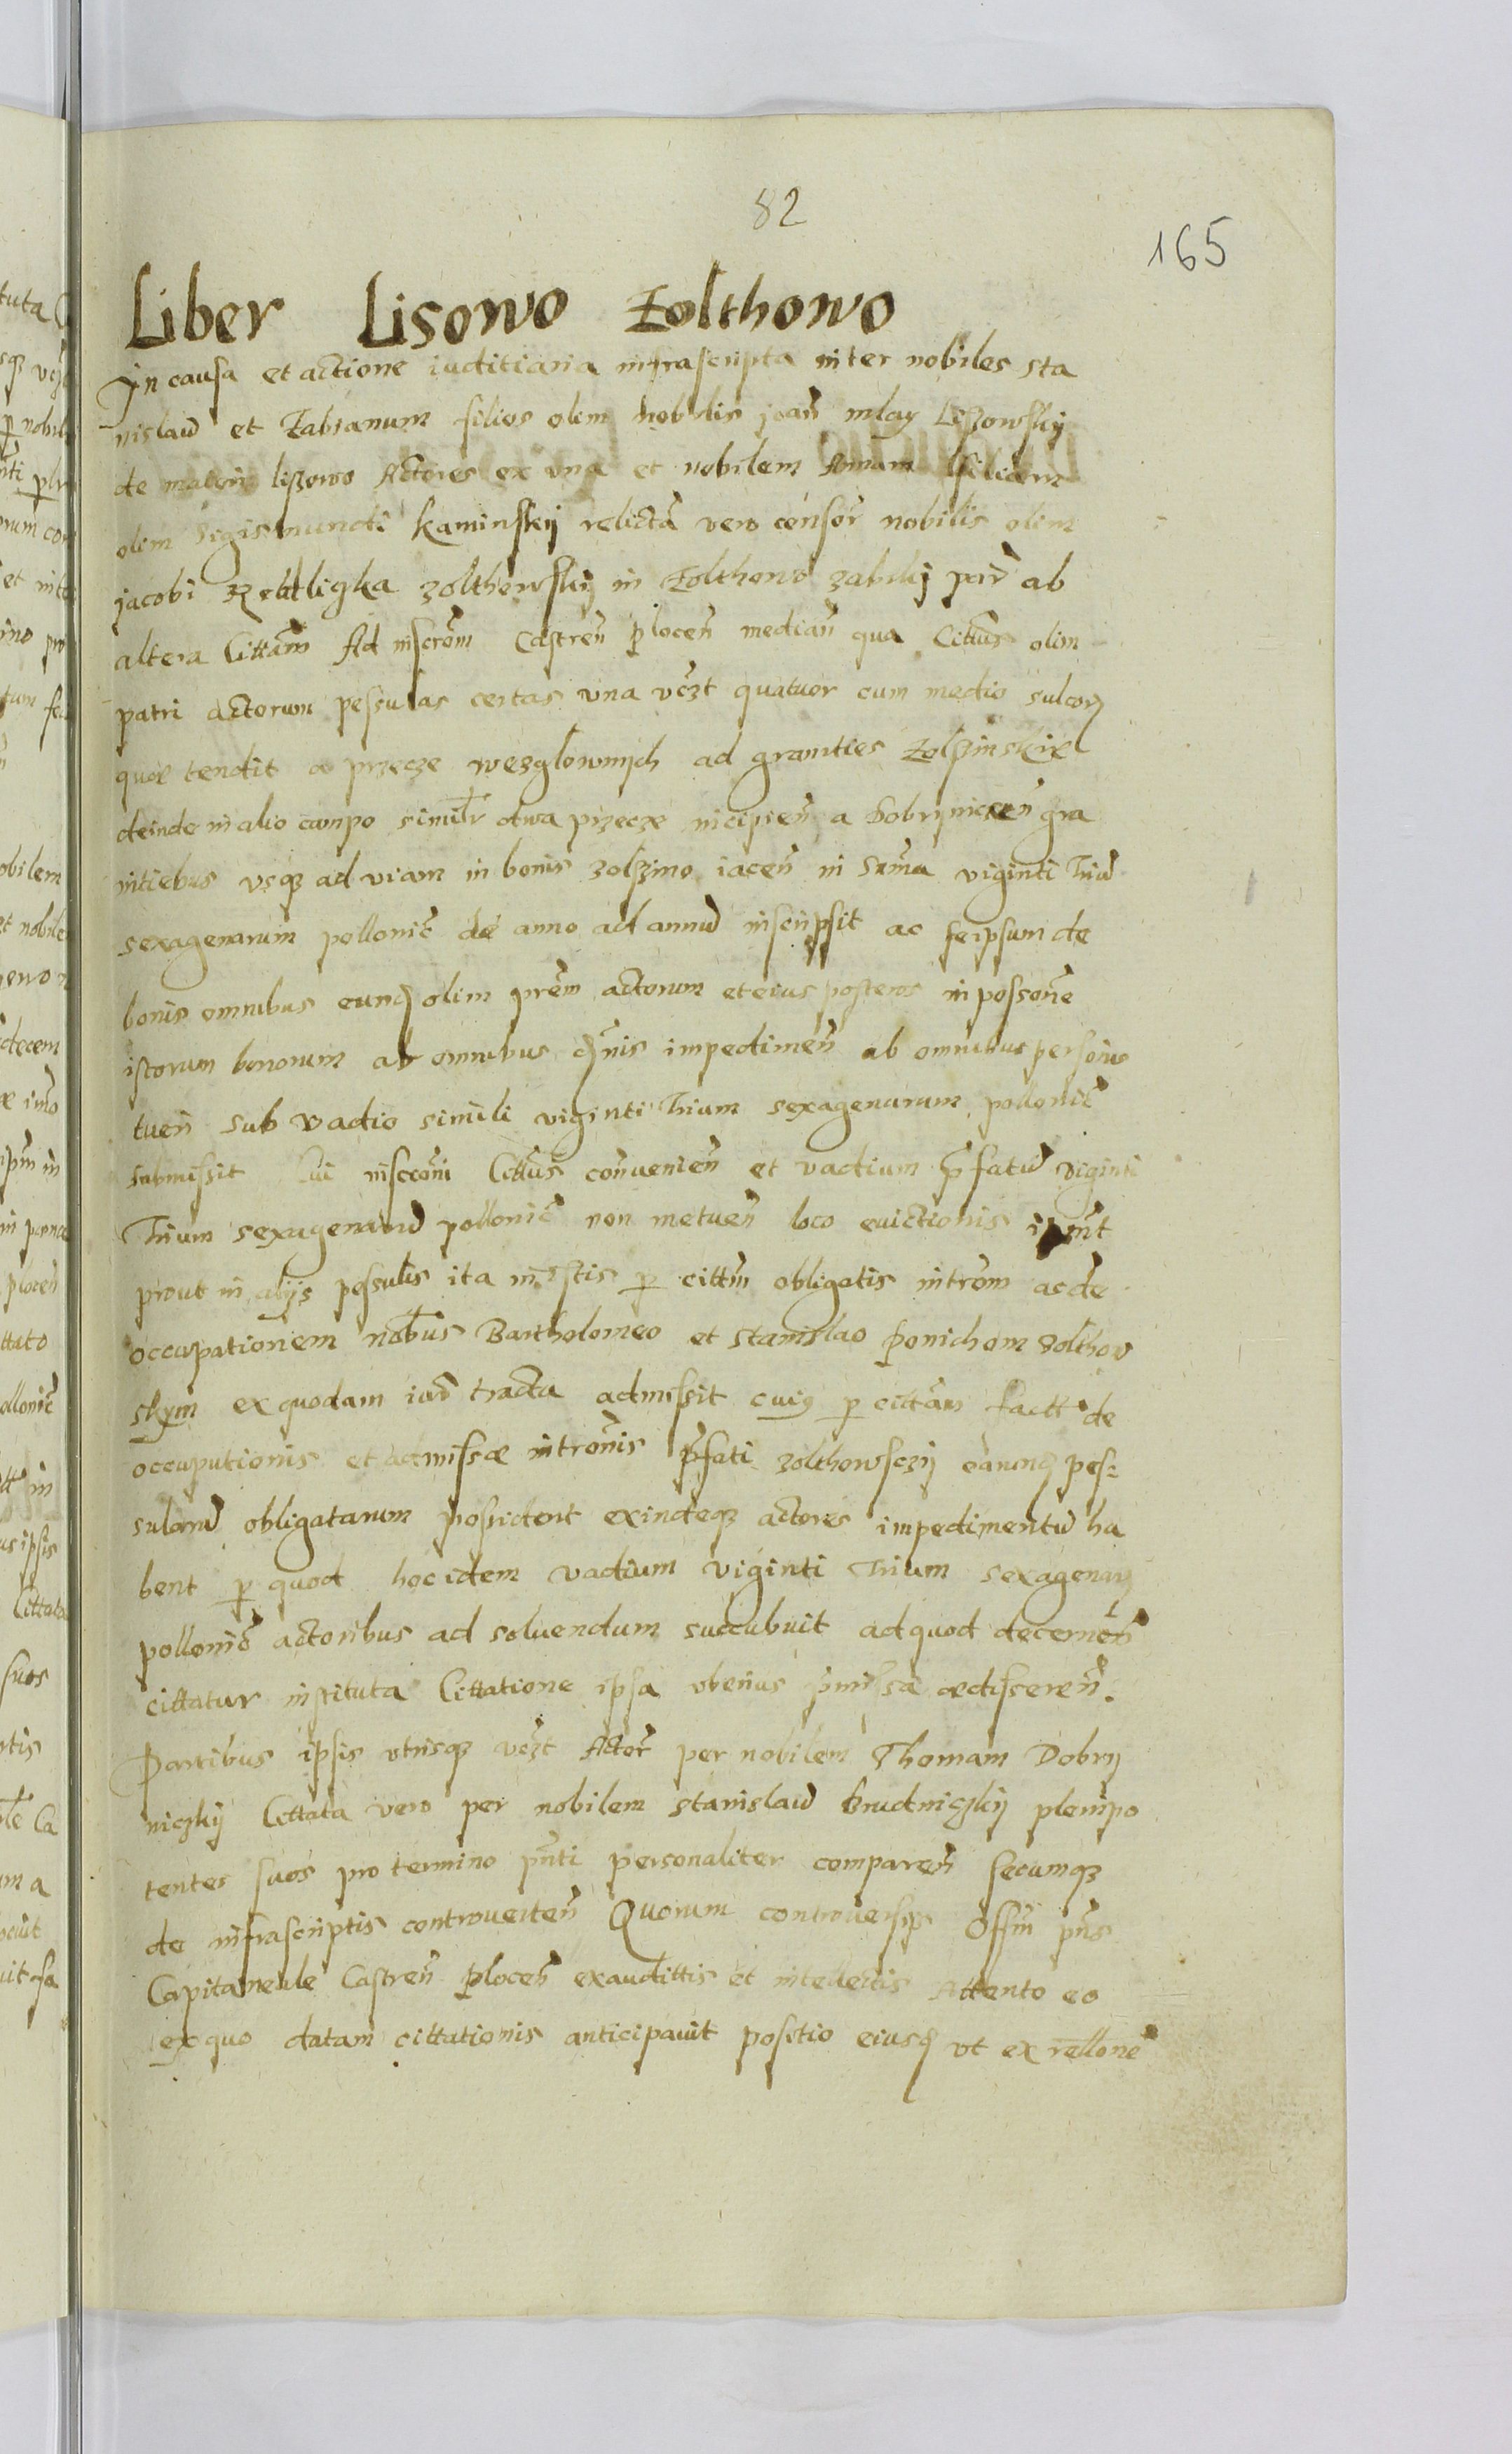 82
165
Liber Lisowo Zolthowo
In causa et actione iuditiaria infrascripta inter nobiles sta
nislaū et Fabianum filios olim nobilis joañ mlay Lissowskij
de maiori lissowo Actores ex una et nobilem Annam filiam
olim Sigismundi Kaminskij relictā vero consor̄ nobilis olim
jacobi zolthowskij in Zolthowo ab
altera Cittatā Ad inscrōm Castreñ ploceñ median̄ qua Cittūs olim
patri actorum pessulas certas una vczt quatuor cum medio sulcorȝ
quae tendit a przecze wezglownijch ad granities Zolszinskie
deinde in alio campo similr̄ dwa przecze incipieñ a Dobrijniczeñ gra
nitiebus vsqȝ ad viam in bonis zolszino iaceñ in Sūma viginti Triū
sexagenarum pollonic̄ de anno ad annū inscripsit ac seipsum de
bonis omnibus eunḡ olim prēm actorum et eius posteros in possonē
istorum bonorum ab omnibus impedimeñ ab omnibus personis
tueñ sub vadio simili viginti Trium sexagenarum pollonic̄
submissit Cui inscroñi Cittūs conuenieñ et vadium p̄fatū viginti
Trium sexagenarū pollonic̄ non metueñ loco euictionis
prout in alijs pessulis ita in istis p cittm̄ obligatis introm̄ ac de
occupationem nobl̄ibus Bartholomeo et stanislao ponichom zolthow
skijm ex quodam iurd̄ tractu admissit cuiȝ p cittām factt de
occupationis et admissae introñis p̄fati zolthowsczij eārunḡ pes
sularū obligatarum possident exindeqȝ actores impedimentū ha
bent p quod hoc idem vadium viginti Trium sexagenarȝ
pollonic̄ actoribus ad soluendum succubuit ad quod decerneñ
cittatur instituta Cittatione ipsa vberius p̄missa aedissereñ.
Partibus ipsis vtrisqȝ vczt Actor̄ per nobilem Thomam Dobrij
niczkij Cittata vero per nobilem stanislaū Brudniczkij plenipo
tentes suos pro termino pñti personaliter compareñ secumqȝ
de infrascriptis controuerteñ Quorum controuersijs Offm̄ pñs
Capitaneale Castreñ ploceñ exaudittis et intellectis Attento eo
ex quo datam cittationis anticipauit positio eiusḡ vt ex rellonē